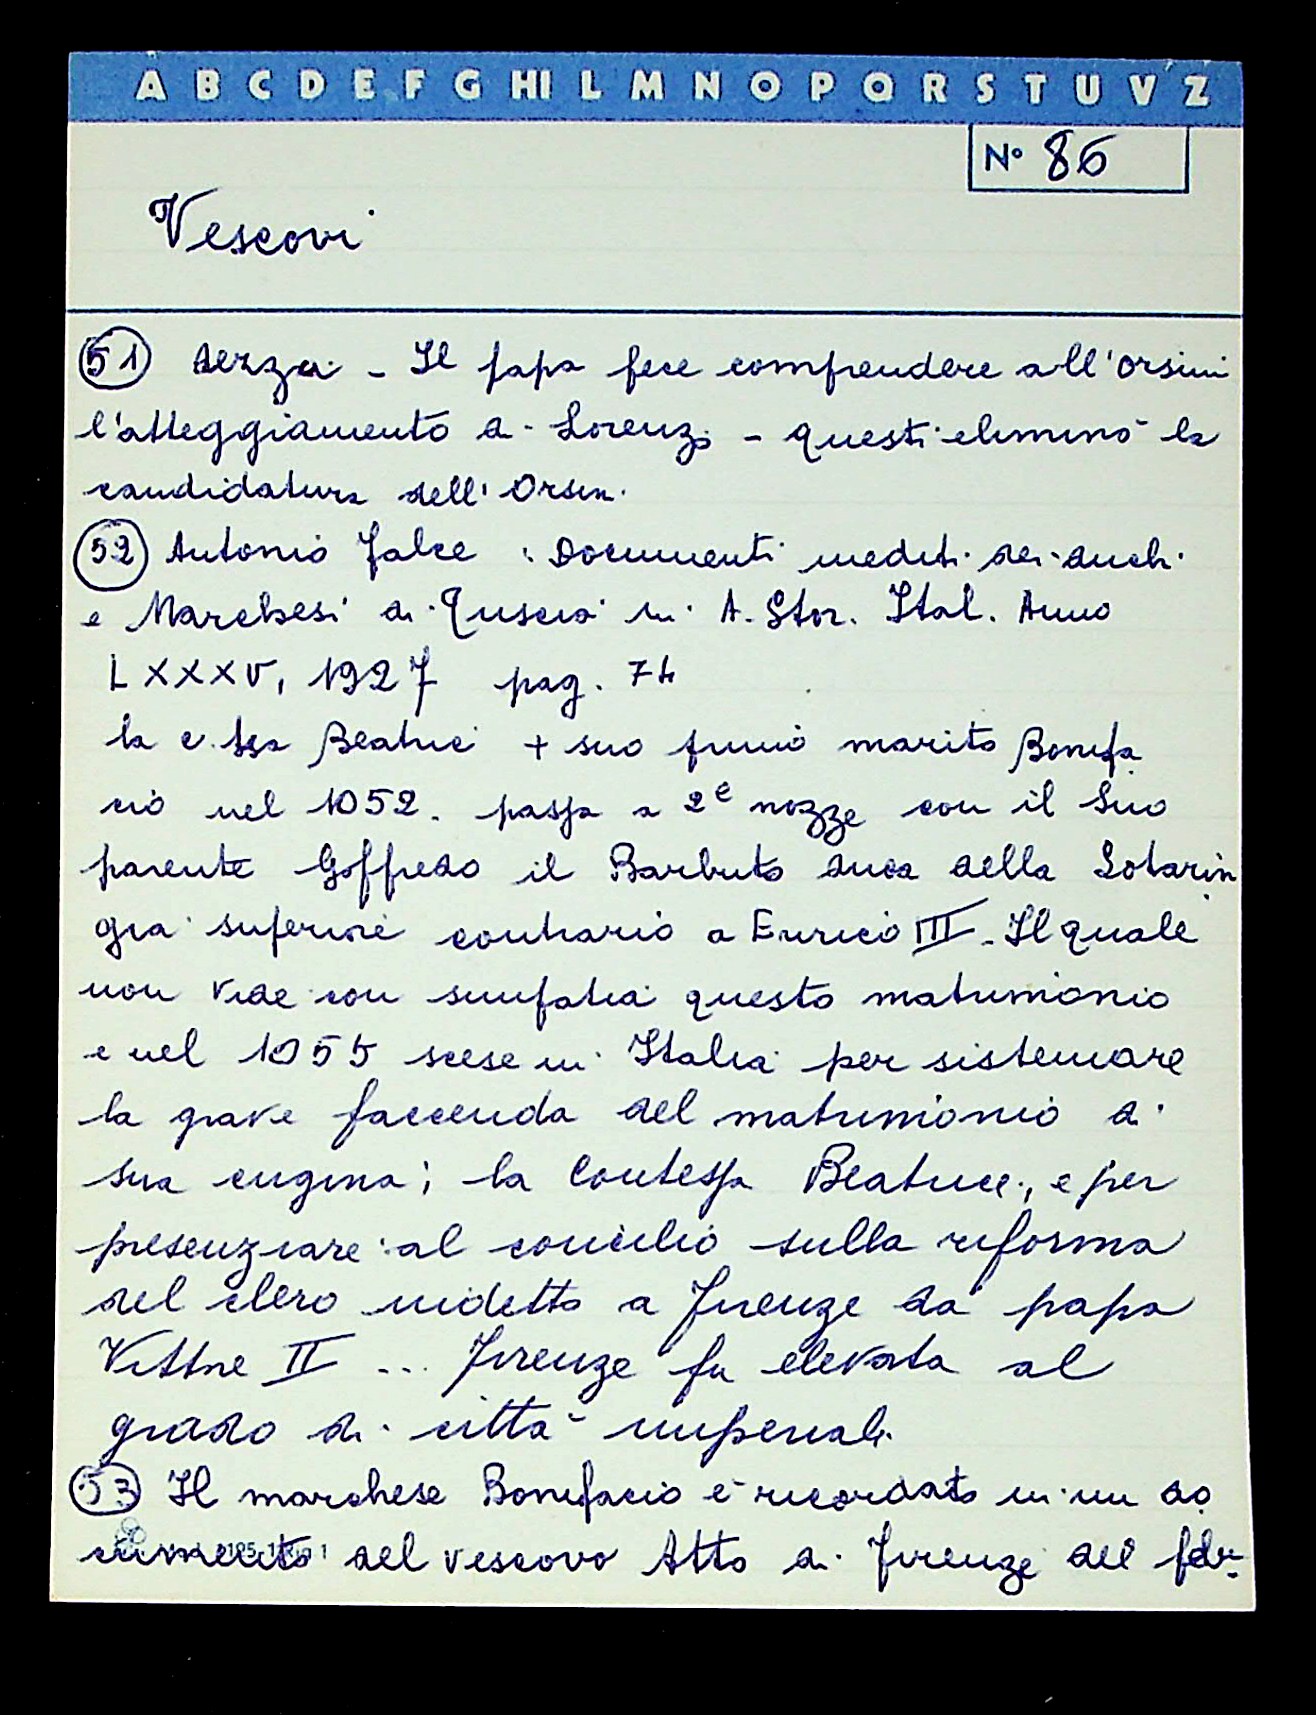 A B C D E F G HI L M N O P Q R S T U V Z
N° 86
Vescovi
51 - Il papa fece comprendere all'Orsini
l'atteggiamento di Lorenzo - questi eliminò la
candidatura dell'Orsini.
52 Antonio Falce : Documenti inediti dei duchi
e Marchesi di Tuscia in A. Stor. Ital. Anno
LXXXV, 1927 pag. 74
la c.ssa Beatrice + suo primo marito Bonifa
cio nel 1052. passa a 2e nozze con il suo
parente Goffredo il Barbuto duca della Lotarin
gia superiore contrario a Enrico III. Il quale
non vide con simpatia questo matrimonio
e nel 1055 scese in Italia per sistemare
la grave faccenda del matrimonio di
sua cugina; la Contessa Beatrice, e per
presenziare al concilio sulla riforma
del clero indetto a Firenze da papa
Vittore II ... Firenze fu elevata al
grado di città imperiali.
53 Il marchese Bonifacio è ricordato in un do
cumento del vescovo Atto di Firenze del febr.